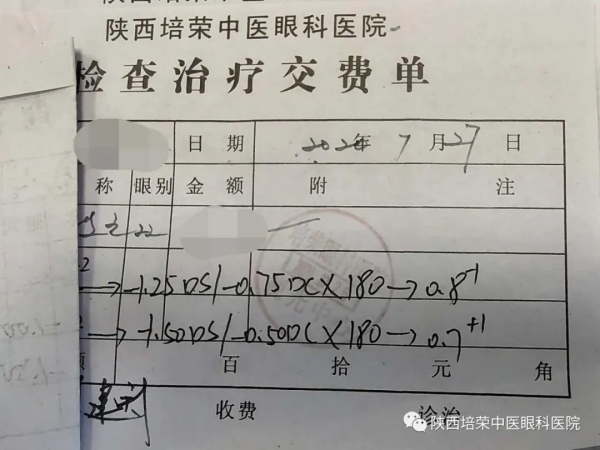 陕西培荣中医眼科医院
陕西培荣中医眼科医院
检查治疗交费单
日期 2020年7月27日
称 眼别 金额 附注
→ -1.25DS/-0.75DC×180→0.8⁻¹
→ -1.50DS/-0.50DC×180→0.7⁺¹
百 拾 元 角
收费 诊治
陕西培荣中医眼科医院